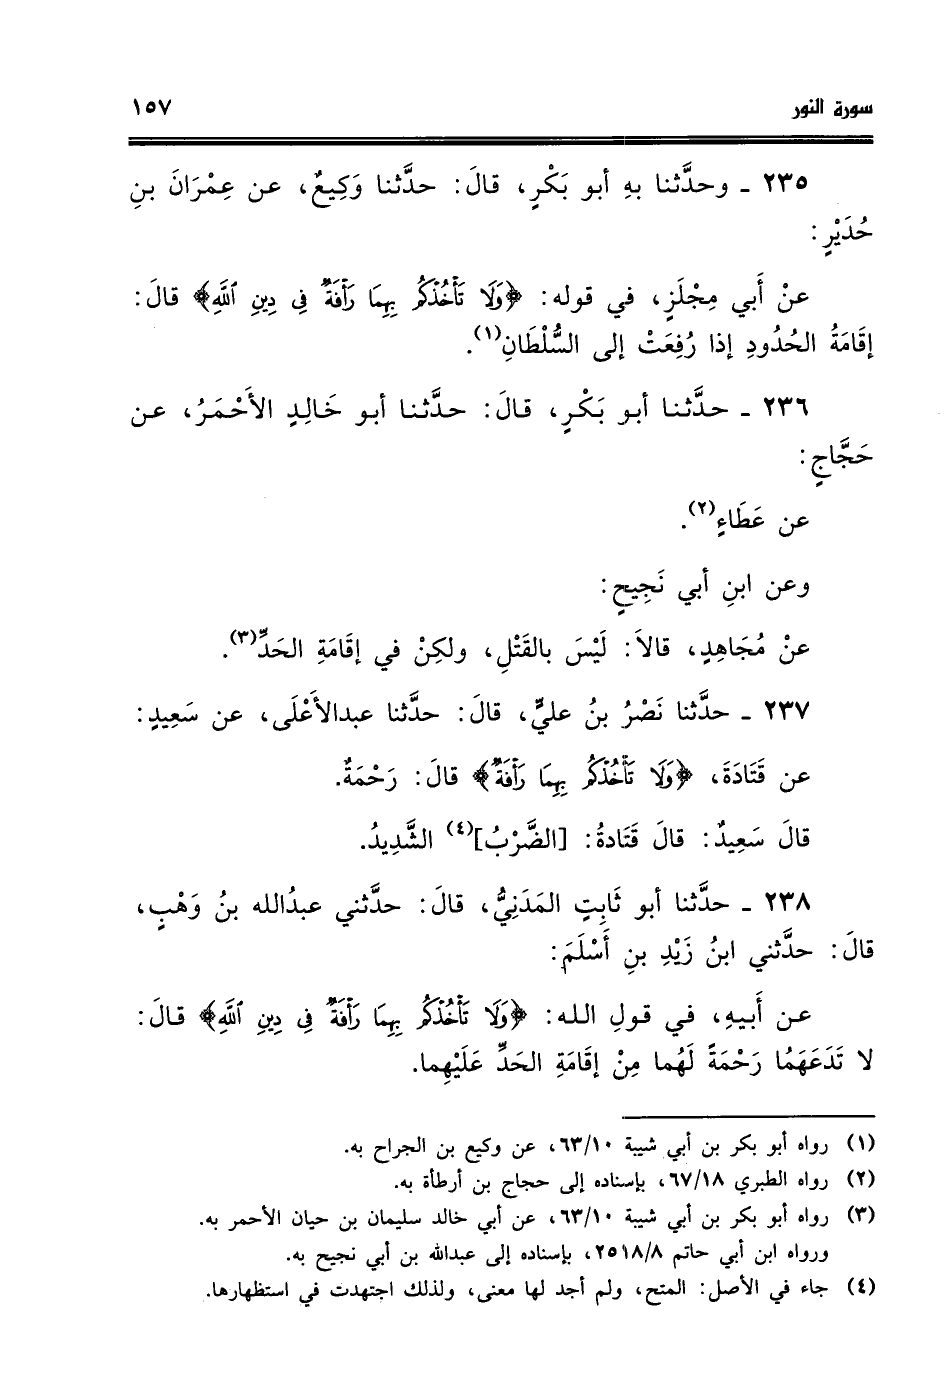 سورة النور ١٥٧
٢٣٥ ـ وحدَّثنا بهِ أبو بَكْرٍ، قالَ: حدَّثنا وَكِيعٌ، عن عِمْرَانَ بنِ
حُدَيْرٍ:
عنْ أَبي مِجْلَزٍ، في قوله: ﴿وَلَا تَأْخُذْكُم بِهِمَا رَأْفَةٌ فِي دِينِ ٱللَّهِ﴾ قالَ:
إقَامَةُ الحُدُودِ إذا رُفِعَتْ إلى السُّلْطَانِ(١).
٢٣٦ ـ حدَّثنا أبو بَكْرٍ، قالَ: حدَّثنا أبو خَالِدٍ الأَحْمَرُ، عن
حَجَّاجٍ:
عن عَطَاءٍ(٢).
وعن ابنِ أبي نَجِيحٍ:
عنْ مُجَاهِدٍ، قالاَ: لَيْسَ بالقَتْلِ، ولكِنْ في إقَامَةِ الحَدِّ(٣).
٢٣٧ ـ حدَّثنا نَصْرُ بنُ عليٍّ، قالَ: حدَّثنا عبدالأَعْلَى، عن سَعِيدٍ:
عن قَتَادَةَ، ﴿وَلَا تَأْخُذْكُم بِهِمَا رَأْفَةٌ﴾ قالَ: رَحْمَةٌ.
قالَ سَعِيدٌ: قالَ قَتَادةُ: [الضَّرْبُ](٤) الشَّدِيدُ.
٢٣٨ ـ حدَّثنا أبو ثَابِتٍ المَدَنِيُّ، قالَ: حدَّثني عبدُالله بنُ وَهْبٍ،
قالَ: حدَّثني ابنُ زَيْدِ بنِ أَسْلَمَ:
عن أَبيهِ، في قولِ الله: ﴿وَلَا تَأْخُذْكُم بِهِمَا رَأْفَةٌ فِي دِينِ ٱللَّهِ﴾ قالَ:
لا تَدَعَهُمَا رَحْمَةً لَهُما مِنْ إقَامَةِ الحَدِّ عَلَيْهِما.
(١) رواه أبو بكر بن أبي شيبة ٦٣/١٠، عن وكيع بن الجراح به.
(٢) رواه الطبري ٦٧/١٨، بإسناده إلى حجاج بن أرطأة به.
(٣) رواه أبو بكر بن أبي شيبة ٦٣/١٠، عن أبي خالد سليمان بن حيان الأحمر به.
ورواه ابن أبي حاتم ٢٥١٨/٨، بإسناده إلى عبدالله بن أبي نجيح به.
(٤) جاء في الأصل: المتح، ولم أجد لها معنى، ولذلك اجتهدت في استظهارها.